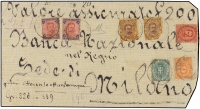 Valore assicurato L. 200
Banca Nazionale
nel Regno
Sede di
Milano
226 - 229